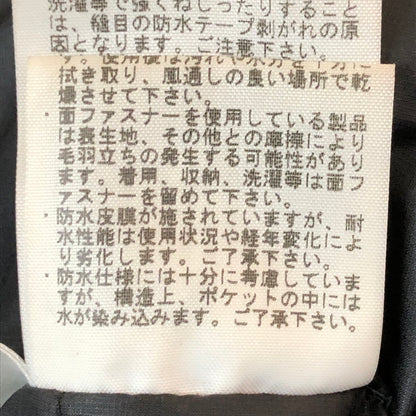 洗濯等で強くねじったりすること
は、縫目の防水テープ剥がれの原
因となります。ご注意下さい。
す。使用後は汚れや水分を十分に
拭き取り、風通しの良い場所で乾
燥させて下さい。
・面ファスナーを使用している製品
は表生地、その他との摩擦により
毛羽立ちの発生する可能性があり
ます。着用、収納、洗濯等は面フ
ァスナーを留めて下さい。
・防水皮膜が施されていますが、耐
水性能は使用状況や経年変化によ
り劣化します。ご了承下さい。
・防水仕様には十分に考慮していま
すが、構造上、ポケットの中には
水が染み込みます。ご了承下さい。